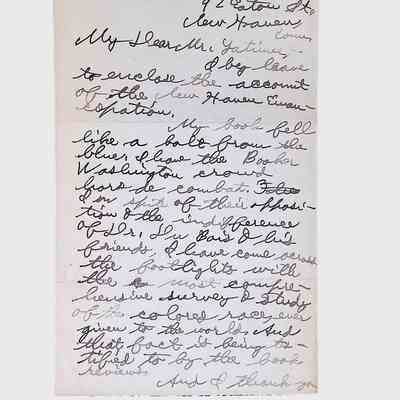 92 Eaton St.
New Haven,
Conn.
My Dear Mr. Yatines,
I beg leave
to enclose the account
of the New Haven Eman-
cipation.
My book fell
like a bolt from the
blue, I have the Booker
Washington crowd
hors de combat.
I in spite of their opposi-
tion & the indifference
of Dr. Du Bois & his
friends, I have come across
the footlights with
the most compre-
hensive survey & study
of the colored race, ever
given to the world, And
that fact is being tes-
tified to by the book
reviews
And I thank you